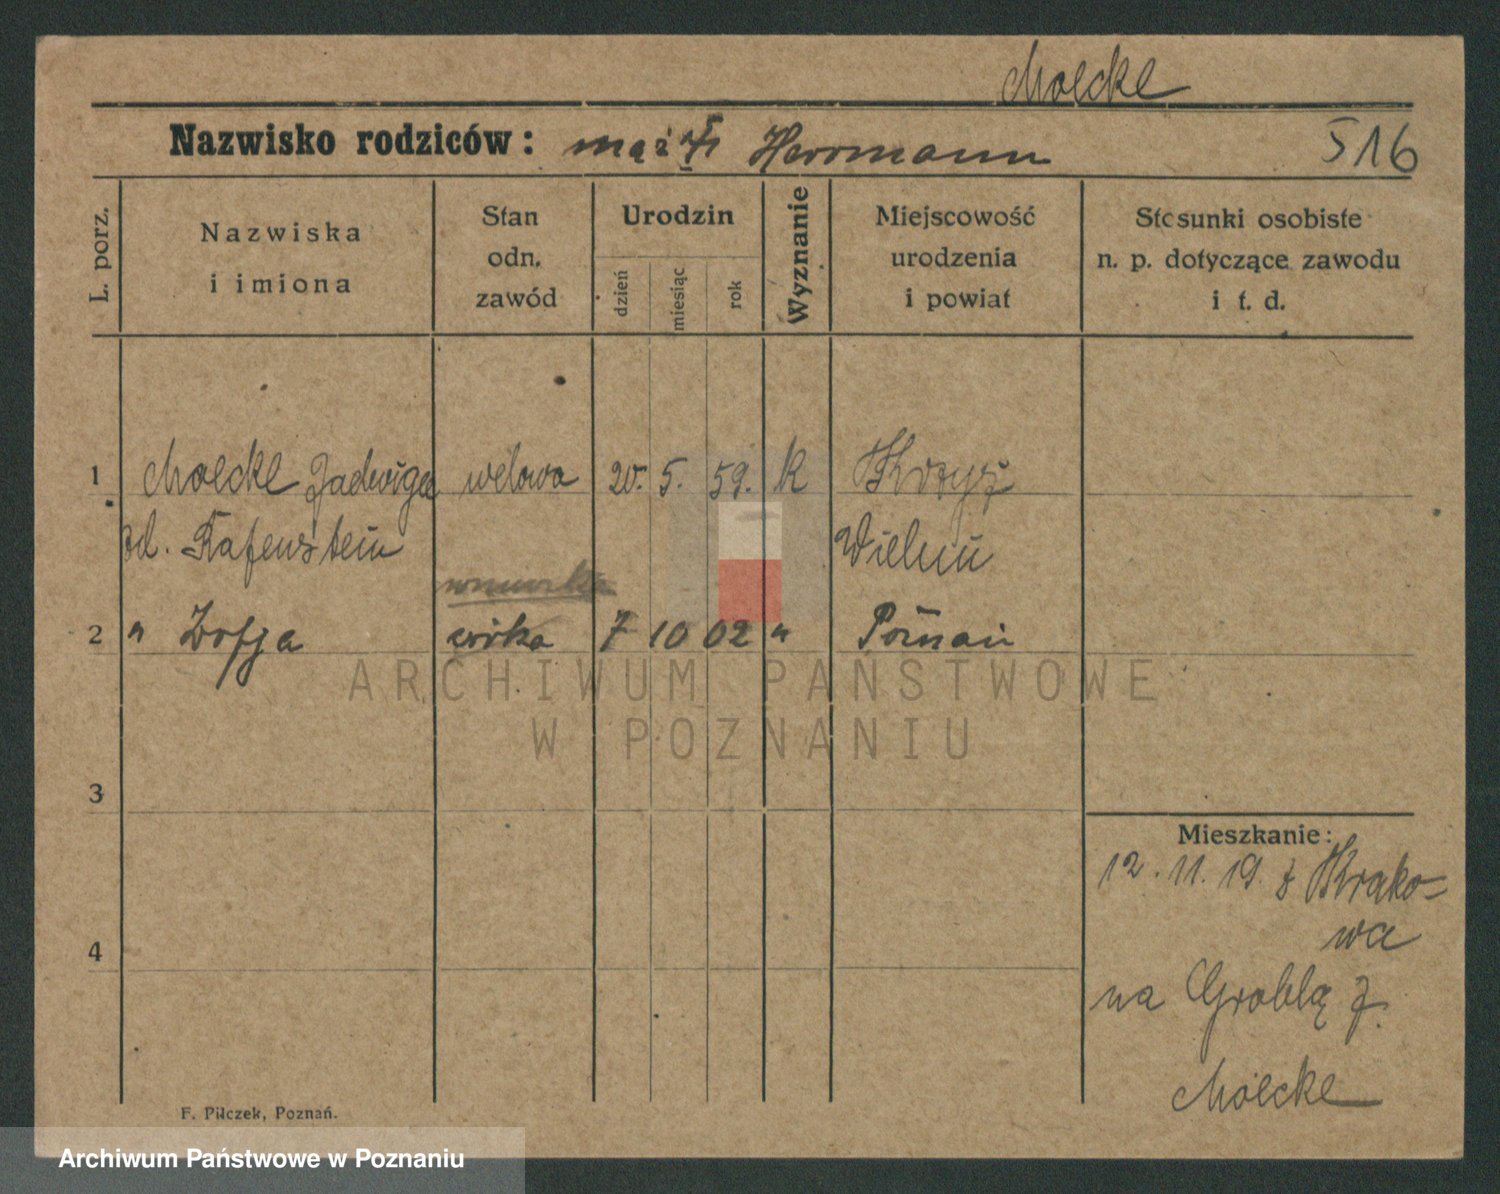 Molcke
Nazwisko rodziców: mąż Herrmann 516
L. porz.
Nazwiska
i imiona
Stan
odn.
zawód
Urodzin
dzień
miesiąc
rok
Wyznanie
Miejscowość
urodzenia
i powiat
Stosunki osobiste
n. p. dotyczące zawodu
i t. d.
1 Molcke Jadwiga wdowa 20. 5. 59. k
Wieluń
2 " Zofja córka 7 10 02 " Poznań
ARCHIWUM PAŃSTWOWE
W POZNANIU
3
Mieszkanie:
12. 11. 19. z Krako=
wa
4
na Groblą 7.
Molcke
F. Pilczek, Poznań.
Archiwum Państwowe w Poznaniu